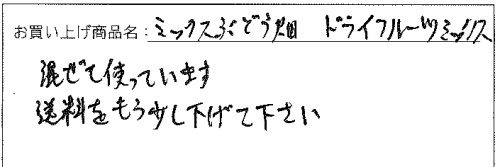 お買い上げ商品名：ミックスぶどう畑　ドライフルーツミックス
混ぜて使っています
送料をもう少し下げて下さい